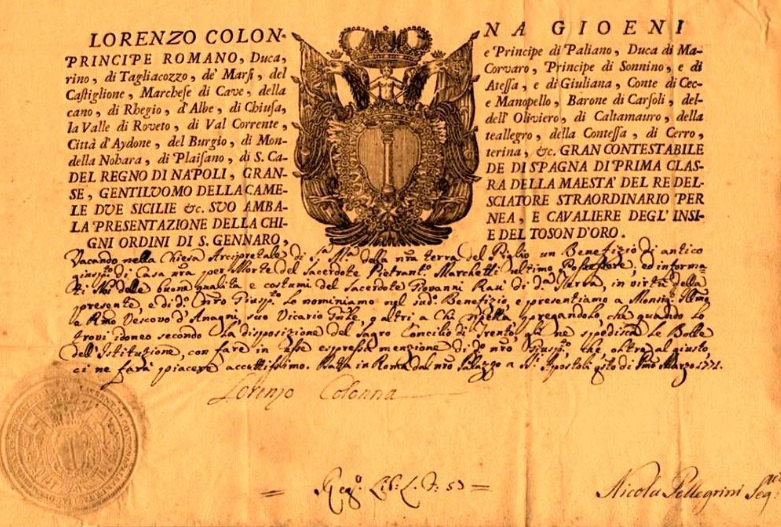 LORENZO COLON- NA GIOENI
PRINCIPE ROMANO, Duca, e Principe di Paliano, Duca di Ma-
rino, di Tagliacozzo, de' Marsi, del Corvaro, Principe di Sonnino, e di
Castiglione, Marchese di Cave, della Atessa, e di Giuliana, Conte di Cec-
cano, di Rhegio, d'Albe, di Chiusa, e Manopello, Barone di Carsoli, del-
la Valle di Roveto, di Val Corrente, dell'Oliviero, di Caltamauro, della
Città d'Aydone, del Burgio, di Mon- teallegro, della Contessa, di Cerro,
della Nohara, di Plaisano, di S. Ca- terina, &c. GRAN CONTESTABILE
DEL REGNO DI NAPOLI, GRAN- DE DI SPAGNA DI PRIMA CLAS-
SE, GENTILUOMO DELLA CAME- RA DELLA MAESTA' DEL RE DEL-
LE DUE SICILIE &c. SUO AMBA- SCIATORE STRAORDINARIO PER
LA PRESENTAZIONE DELLA CHI- NEA, E CAVALIERE DEGL' INSI-
GNI ORDINI DI S. GENNARO, E DEL TOSON D'ORO.
Vacando nella Chiesa Arcipretale di S. Mᵃ della nrã terra del Piglio un Benefizio di antico
di Casa nrã per Morte del Sacerdote Marchetti ultimo Possessore, ed informa-
ti Noi delle buone qualità e costumi del Sacerdote Giovanni di dᵃ Terra, in virtù della
presente, e di dᵒ nrõ lo nominiamo nel Benefizio e presentiamo a
e Rmõ Vescovo d'Anagni, suo Vicario o altri a Chi spetta pregandolo, che quando lo
trovi idoneo secondo la disposizione del Sagro Concilio di Trento, ne spedisca le Bolle
dell'Istituzione, con fare in esse espressa menzione di dᵒ nrõ che oltre al giusto
ci ne farà piacere accettissimo. Data in Roma dal nrõ Palazzo a SS. Apostoli Marzo 1771.
Lorenzo Colonna
Regᵒ Lib. 53
Nicola Pellegrini Segʳⁱᵒ